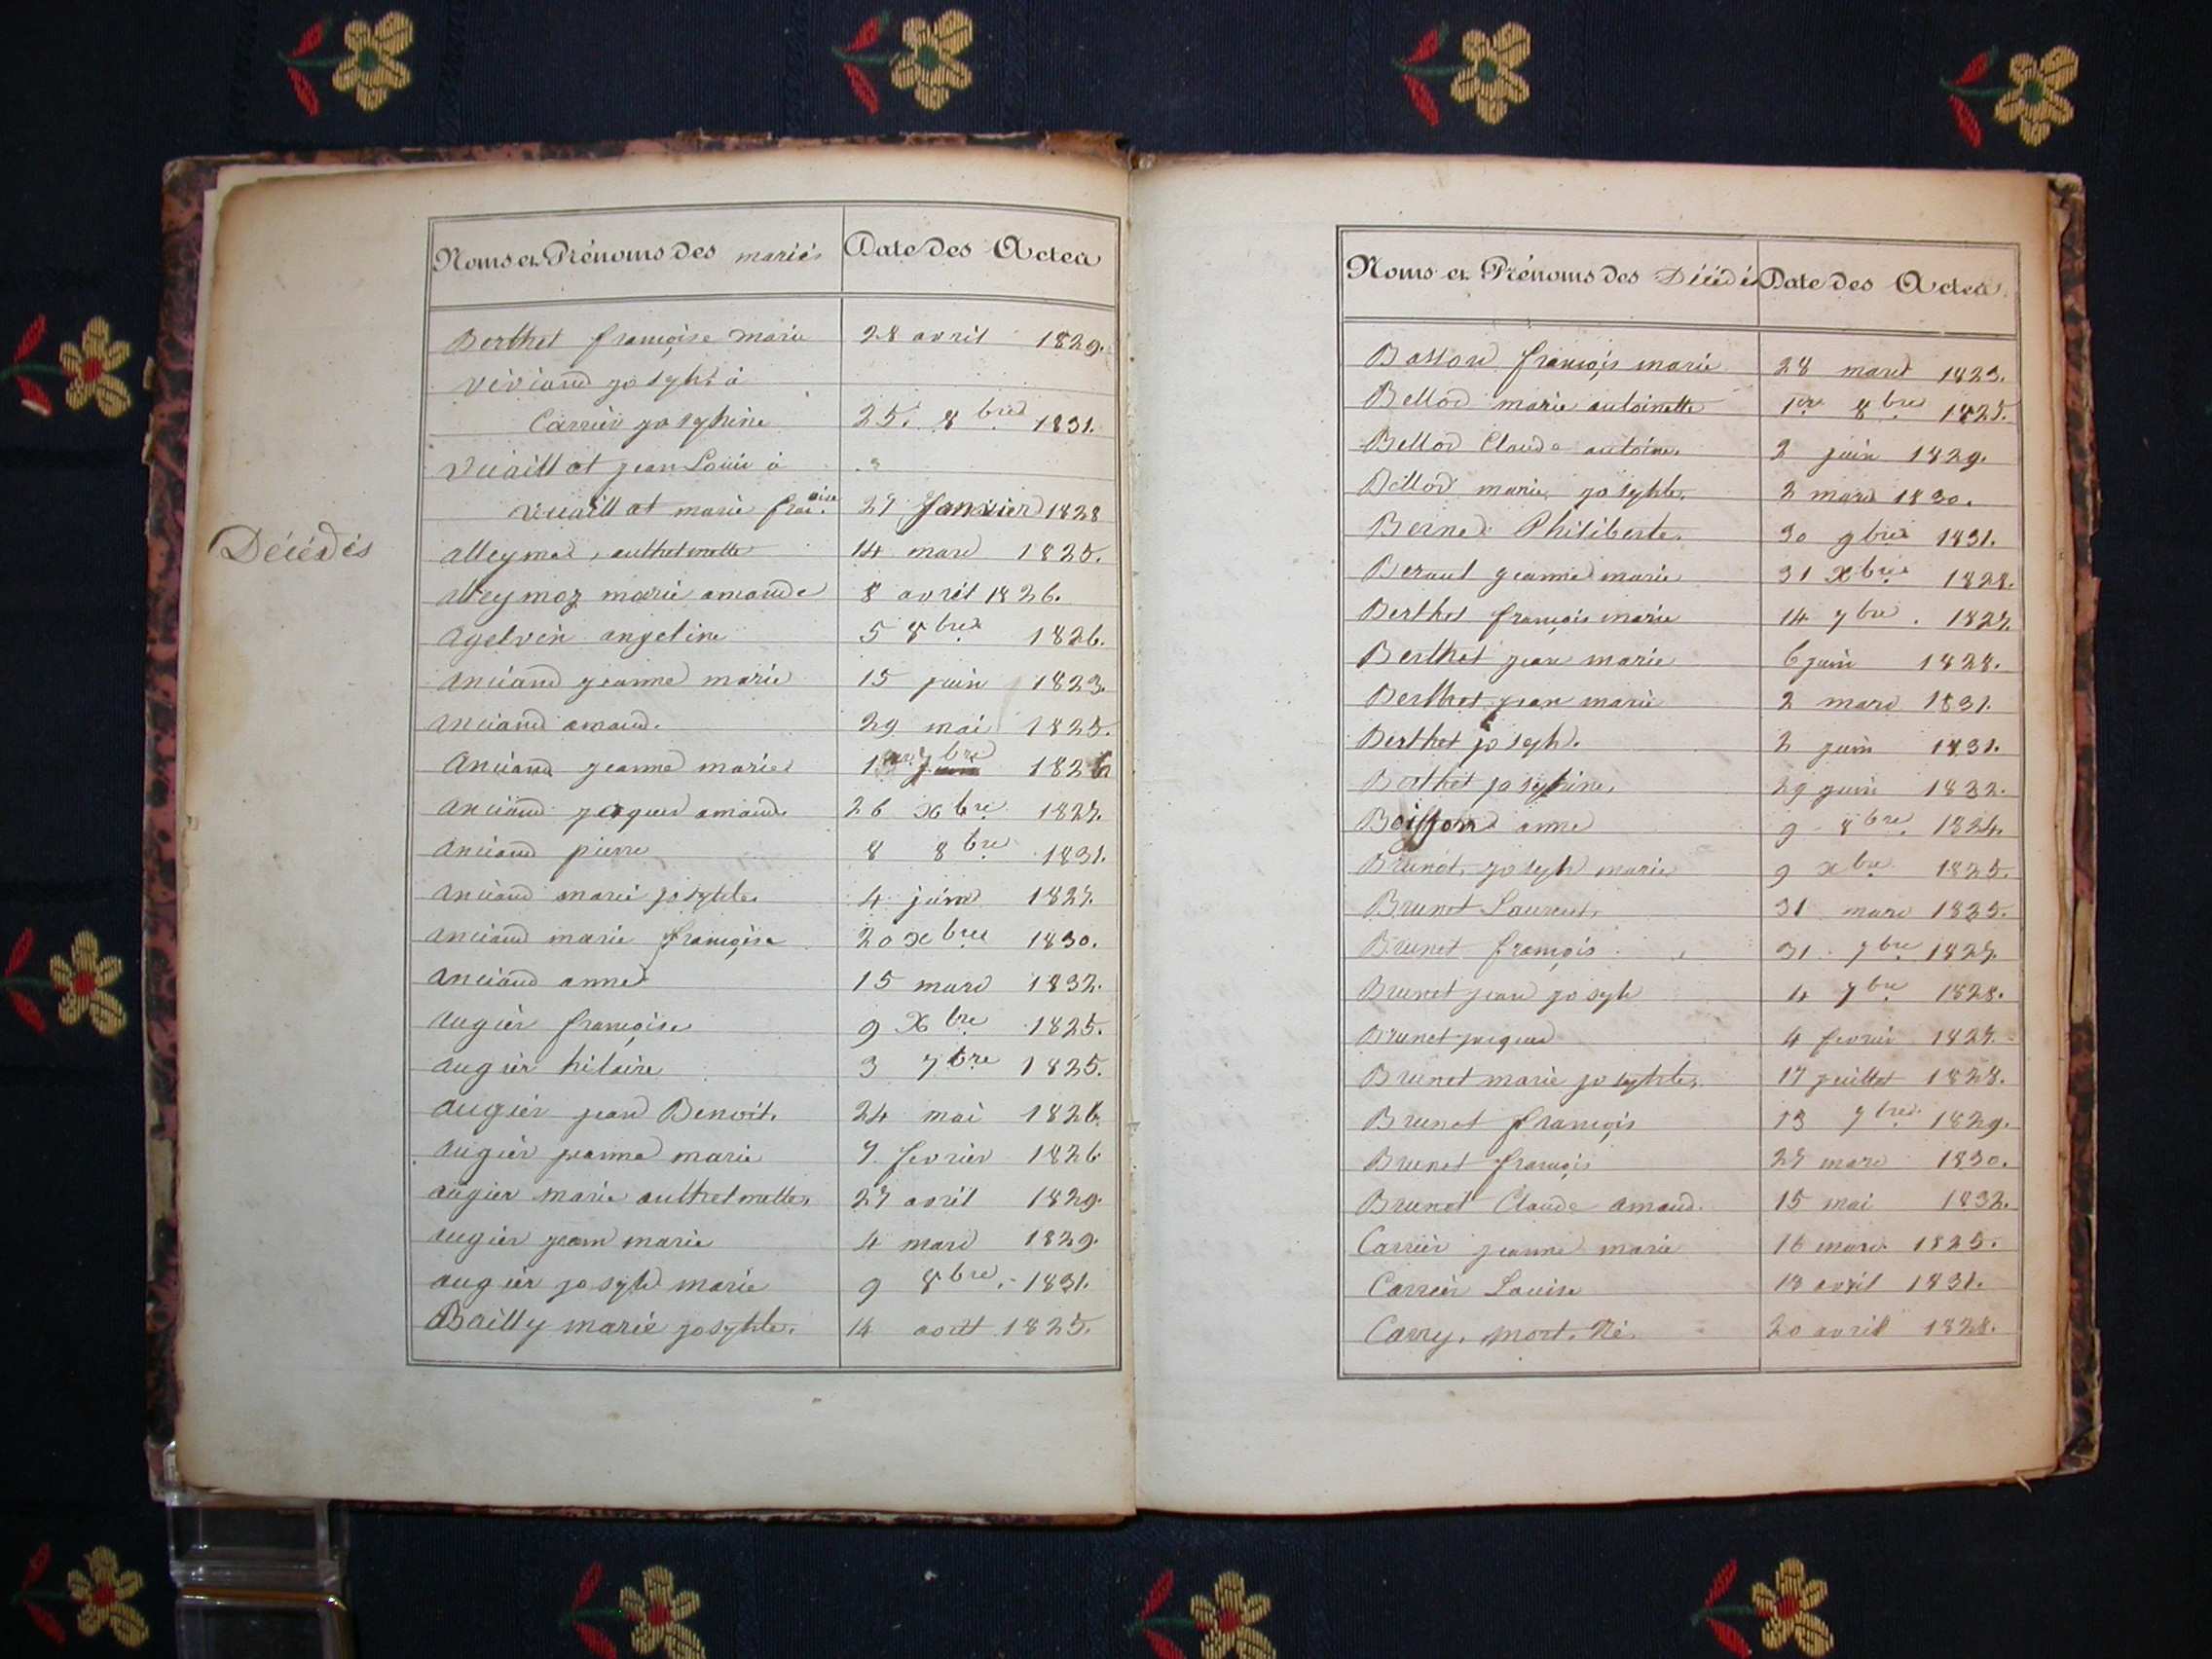 Noms et Prénoms des mariés Date des Actes
Berthet françoise marie 28 avril 1829.
viviand joseph à
Carrier josephine 25. 8bre 1831.
Vuaillat jean Louis à
vuaillat marie franoise 27 Janvier 1828
Décédés
alleymoz, anthelmette 14 mars 1825.
alleymoz marie amande 8 avril 1826.
Agelvin angeline 5 8bre 1826.
anciand jeanne marie 15 juin 1823.
anciand amand. 29 mai 1825.
Anciand jeanne marie 1er 7bre 1826
anciand jacques amand. 26 xbre 1827.
anciand pierre 8 8bre 1831.
anciand marie josephte. 4 juin 1827.
anciand marie françoise 20 xbre 1830.
anciand anne 15 mars 1832.
augier françoise 9 Xbre 1825.
augier hilaire 3 7bre 1825.
augier jean Benoit. 24 mai 1826.
augier jeanne marie 7. fevrier 1826
augier marie anthelmette. 27 avril 1829.
augier jean marie 4 mars 1829.
augier joseph marie 9 8bre. 1831.
Bailly marie josephte. 14 aout 1825.
Noms et Prénoms des Décédés Date des Actes
françois marie 28 mars 1823.
Bellod marie antoinette 1er 8bre 1825.
Bellod Claude antoine. 2 juin 1829.
Bellod marie josephte. 2 mars 1830.
Berne Philiberte. 30 9bre 1831.
Beraut jeanne marie 31 Xbre 1828.
Berthet françois marie 14 7bre. 1827.
Berthet jean marie 6 juin 1828.
Berthet jean marie 2 mars 1831.
Berthet joseph. 2 juin 1831.
Berthet josephine. 29 juin 1832.
Boisson anne 9 8bre. 1824.
Brunet. joseph marie 9 xbre 1825.
Brunet Laurent. 31 mars 1825.
Brunet françois. 31. 7bre 1827.
Brunet jean joseph 4 7bre 1828.
Brunet jacques 4 fevrier 1827.
Brunet marie josephte. 17 juillet 1828.
Brunet françois 13 7bre 1829.
Brunet françois 27 mars 1830.
Brunet Claude amand. 15 mai 1832.
Carrier jeanne marie 16 mars 1825.
Carrier Louise 13 avril 1831.
Carry. mort. Né. 20 avril 1828.